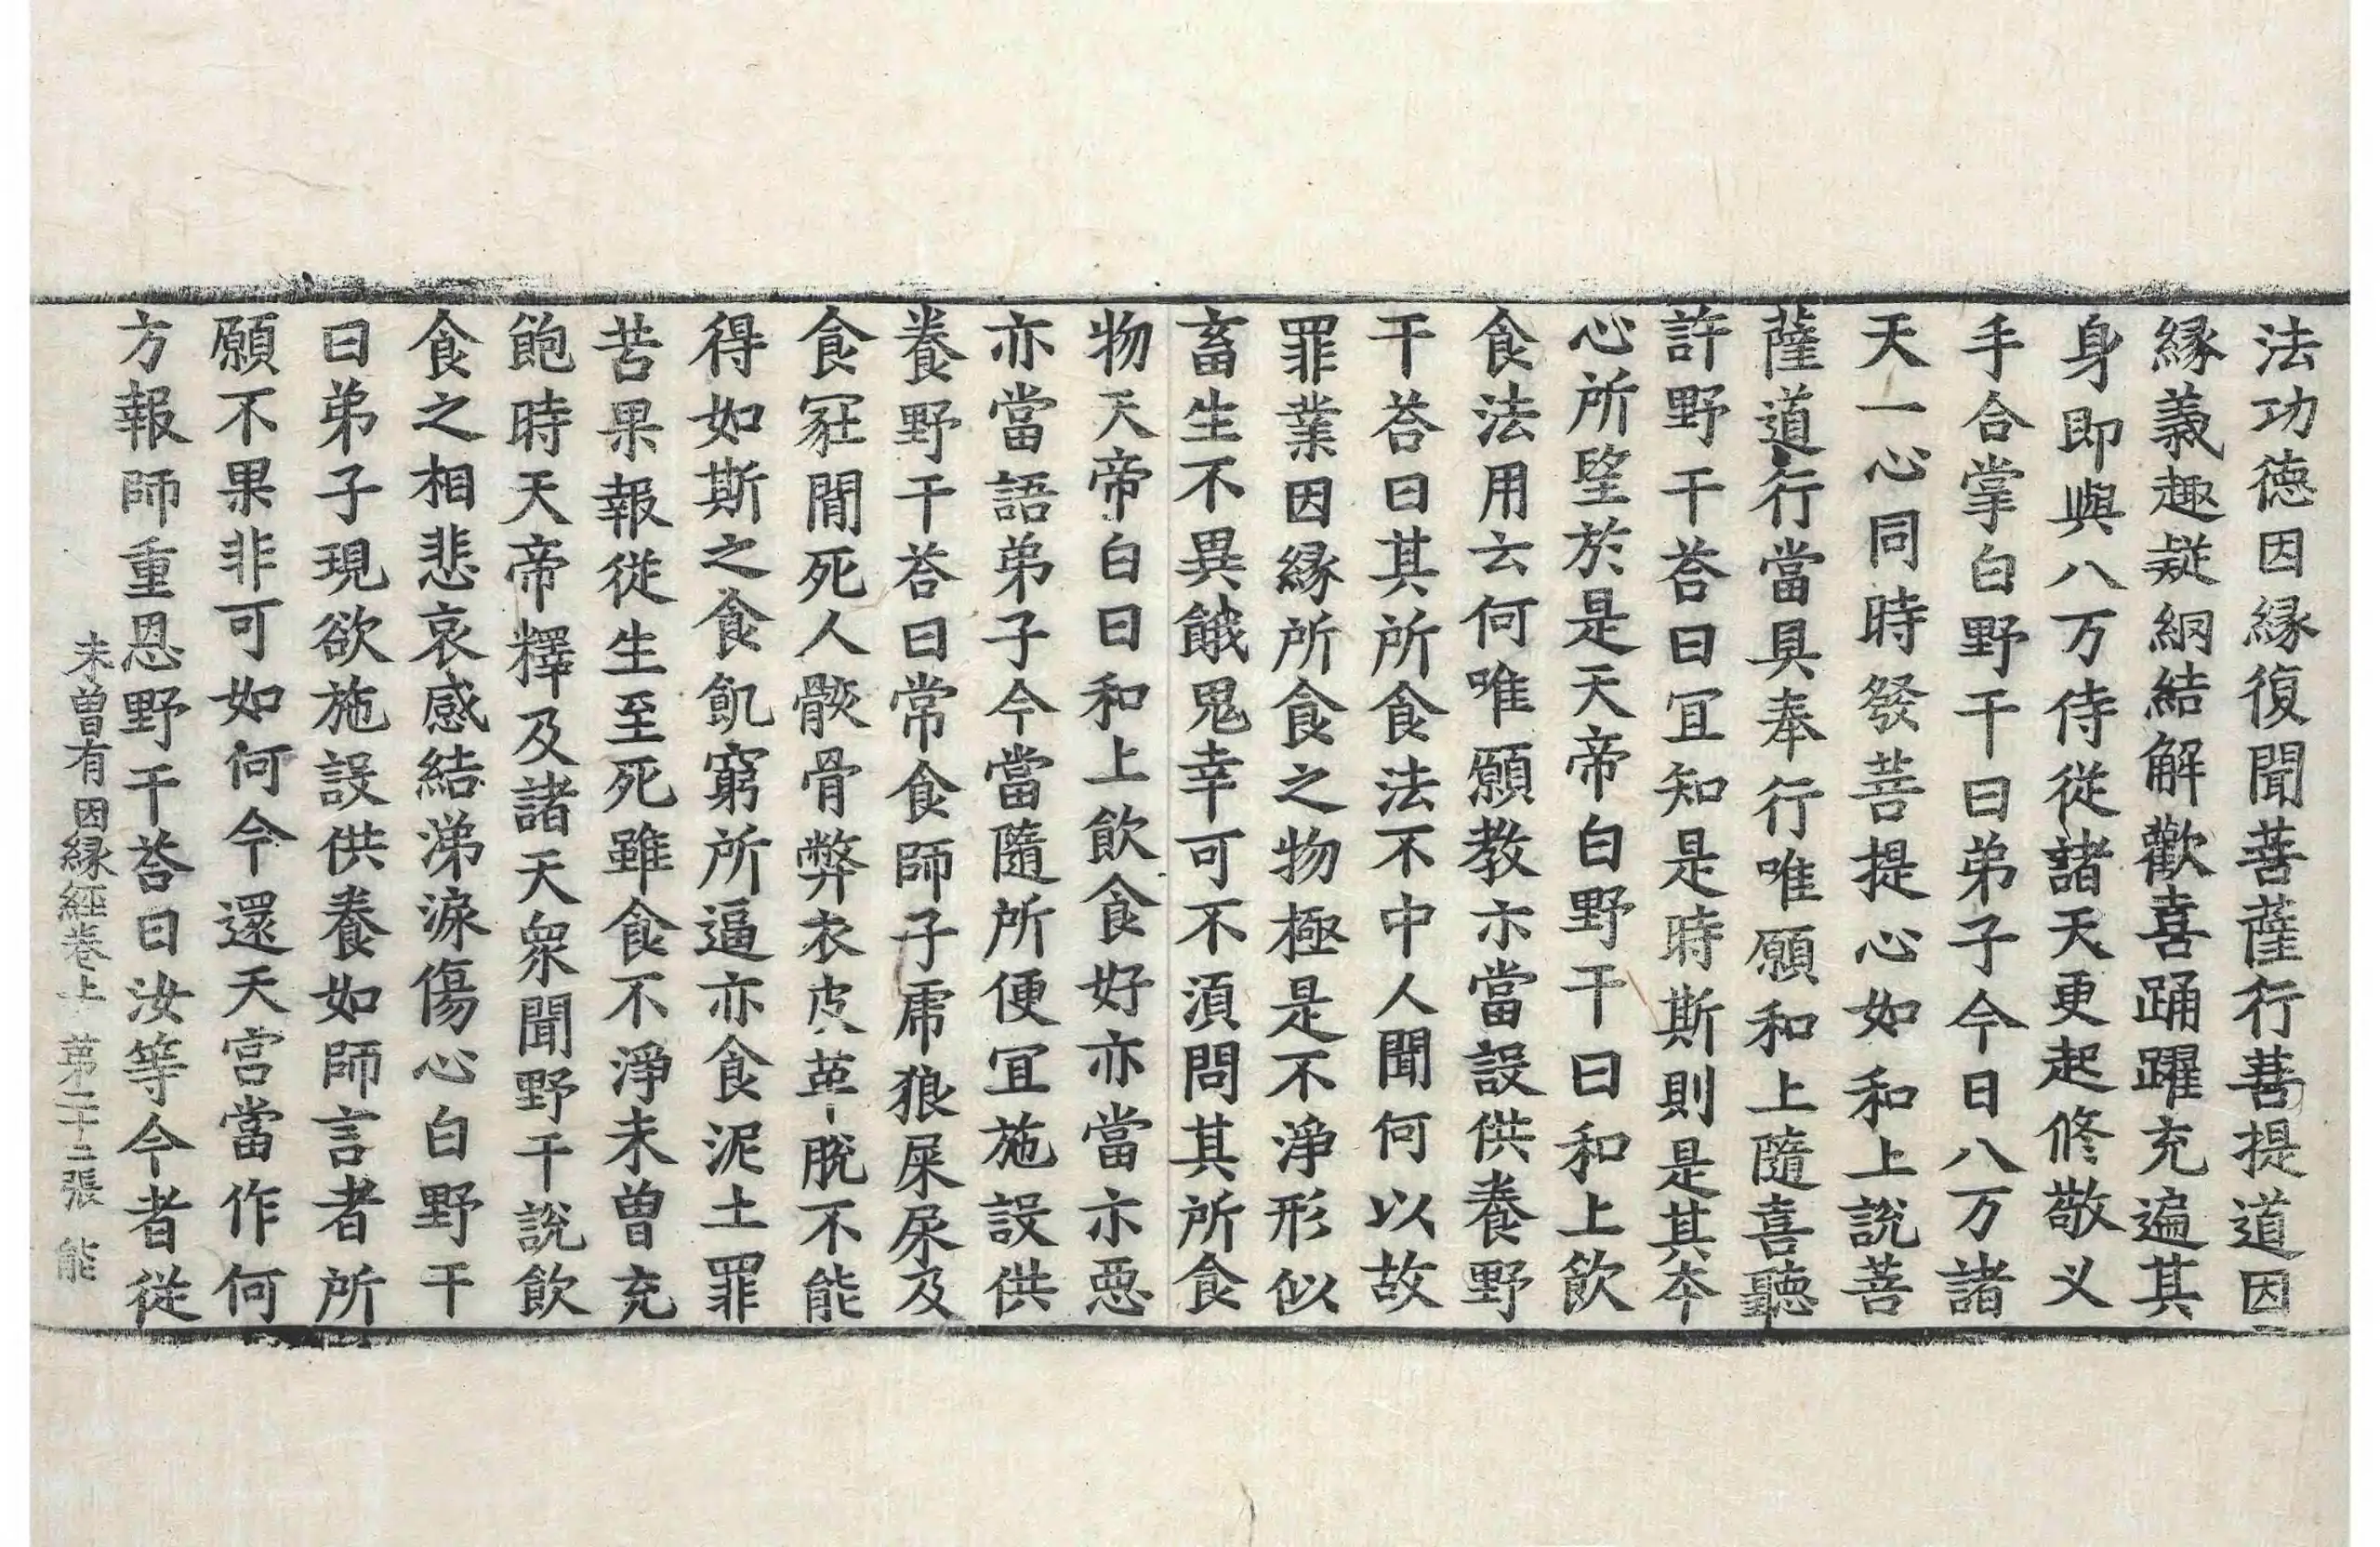 法功德因縁復聞菩薩行菩提道因
縁義趣疑網結解歡喜踊躍充遍其
身即與八万侍從諸天更起修敬叉
手合掌白野干曰弟子今日八万諸
天一心同時發菩提心如和上說菩
薩道行當具奉行唯願和上隨喜聽
許野干荅曰冝知是時斯則是其夲
心所望於是天帝白野干曰和上飲
食法用云何唯願教亦當設供養野
干荅曰其所食法不中人聞何以故
罪業因縁所食之物極是不淨形似
畜生不異餓鬼幸可不須問其所食
物天帝白曰和上飲食好亦當亦惡
亦當語弟子今當隨所便冝施設供
養野干荅曰常食師子虎狼屎尿及
食冢間死人骸骨弊衣皮革脫不能
得如斯之食飢窮所逼亦食泥土罪
苦果報從生至死雖食不淨未曾充
飽時天帝釋及諸天衆聞野干說飲
食之相悲哀感結涕淚傷心白野干
曰弟子現欲施設供養如師言者所
願不果非可如何今還天宮當作何
方報師重恩野干荅曰汝等今者從
未曾有因縁經卷上　第二十二張　能